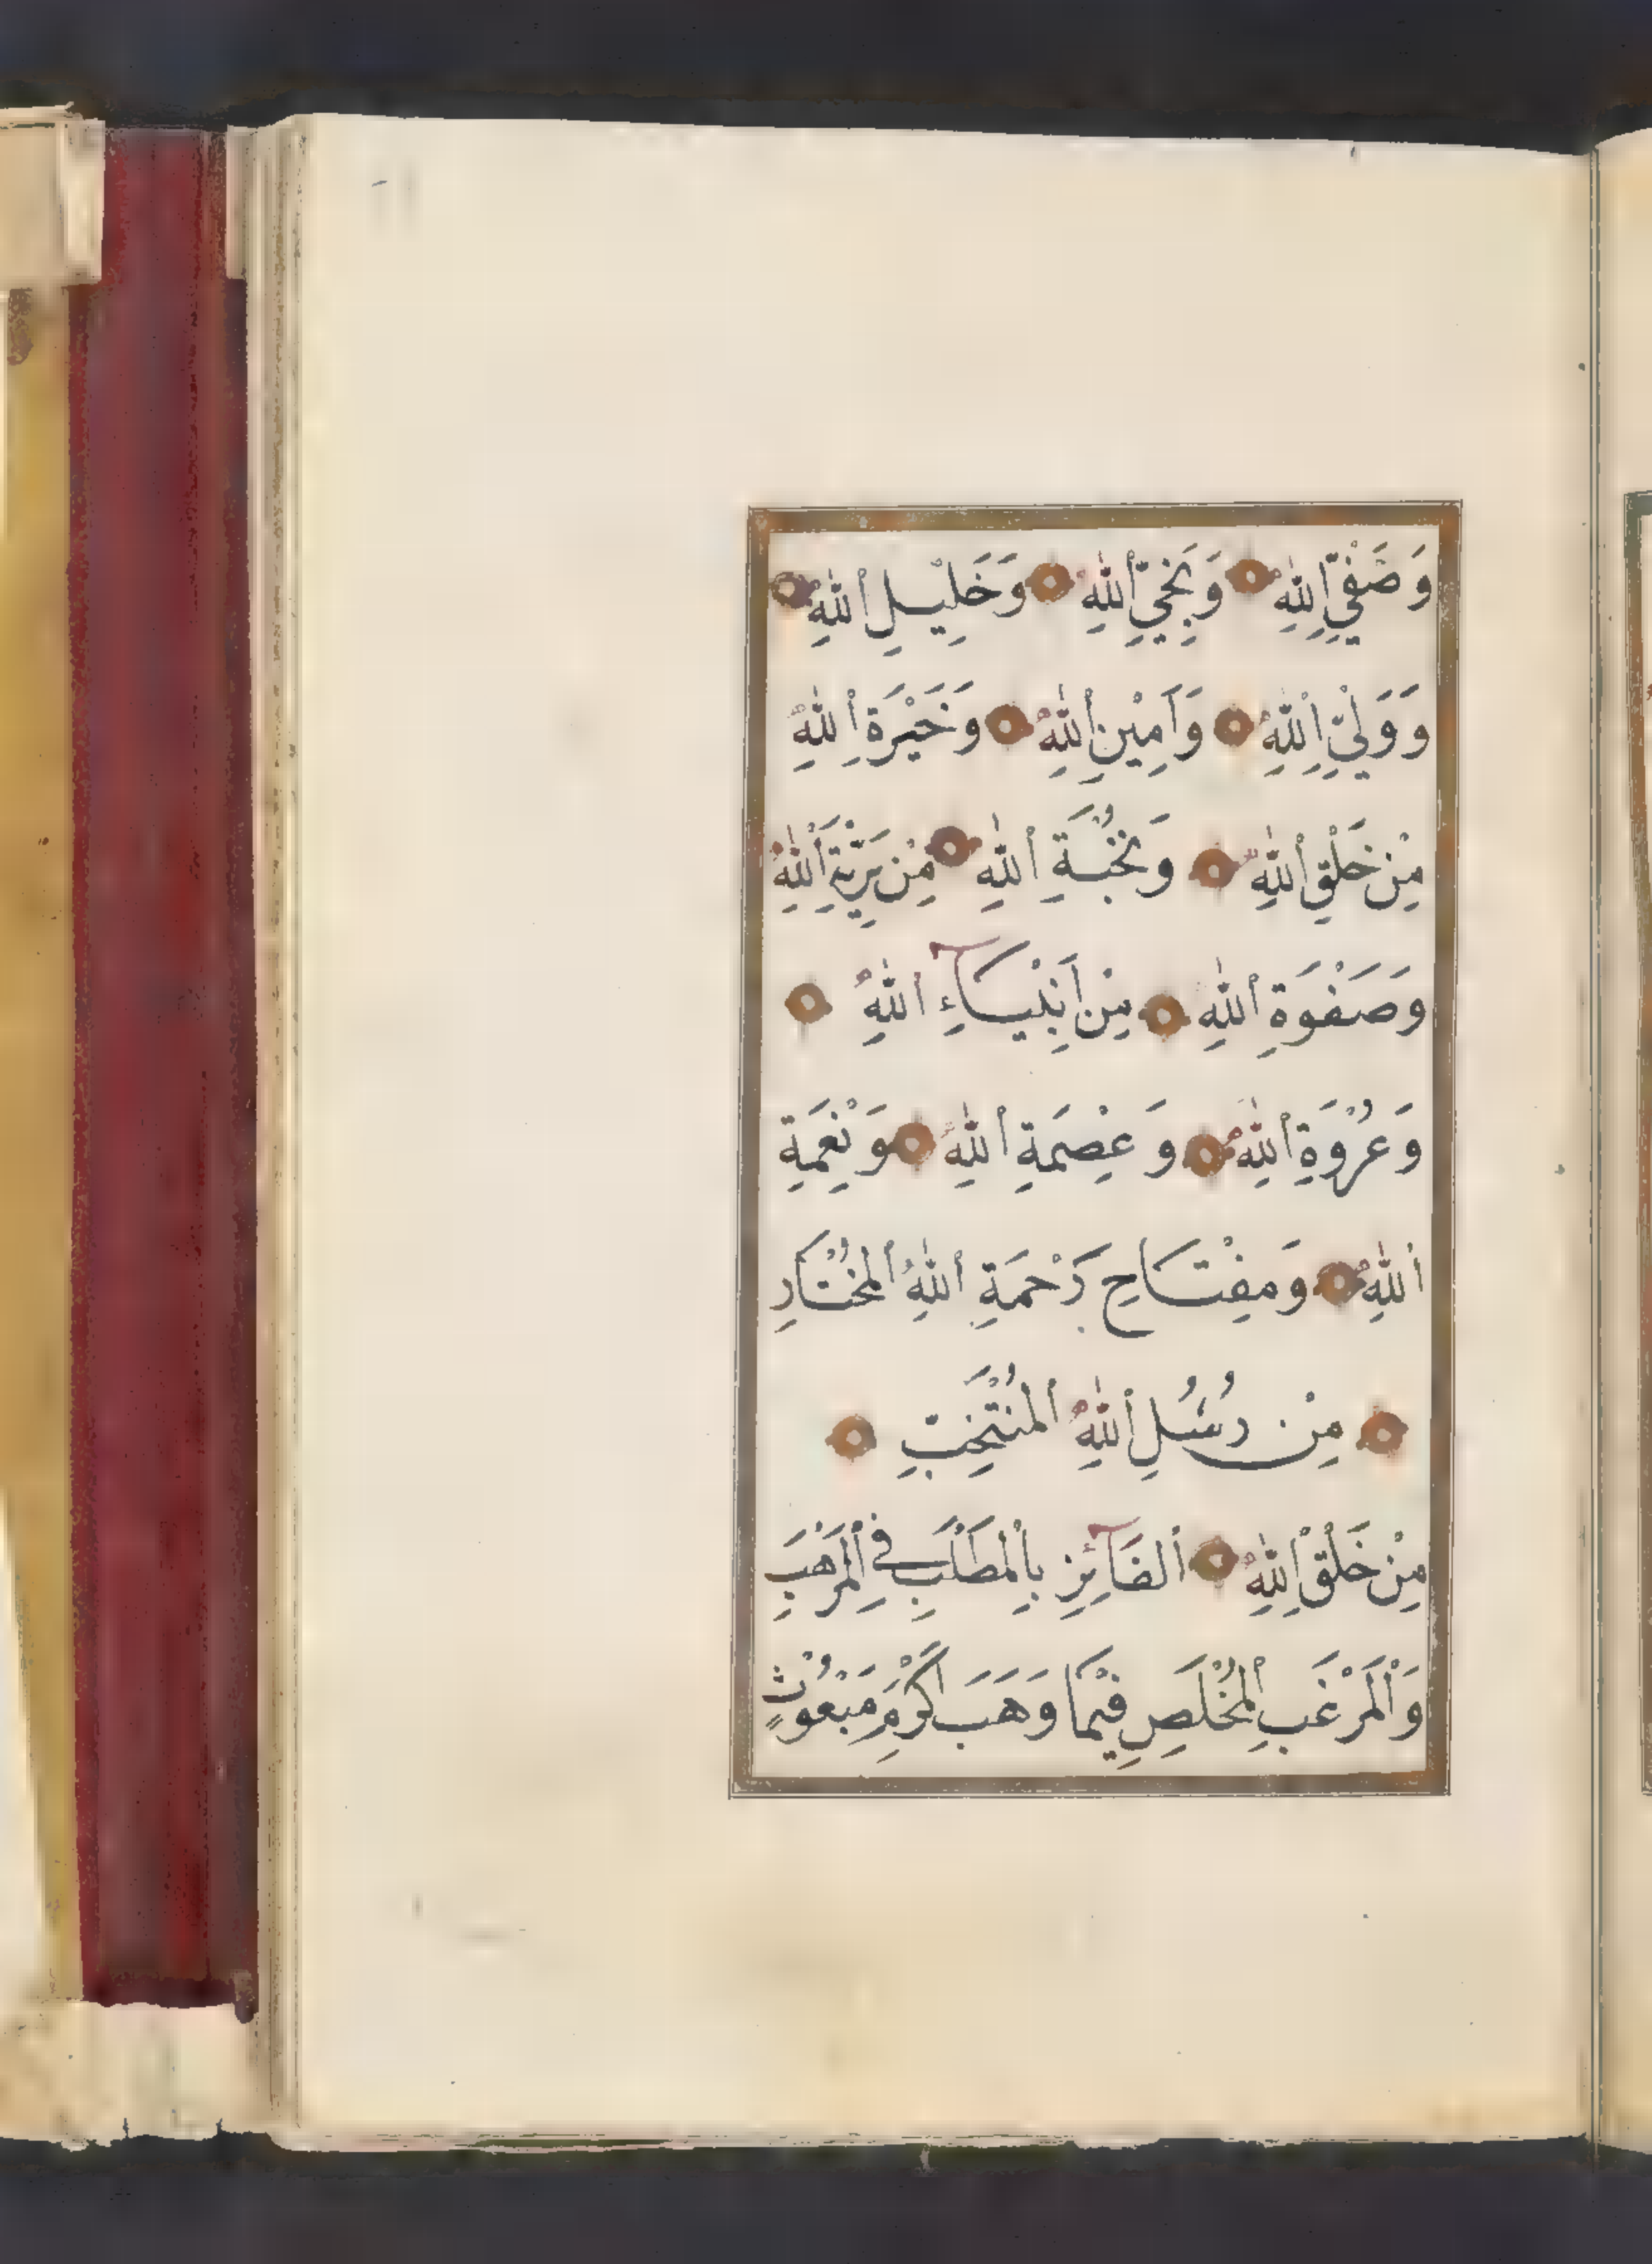 وَصَفِيِّ اللّٰهِ وَنَجِيِّ اللّٰهِ وَخَلِيْلِ اللّٰهِ
وَوَلِيِّ اللّٰهِ وَاَمِيْنِ اللّٰهِ وَخَيْرَةِ اللّٰهِ
مِنْ خَلْقِ اللّٰهِ وَنُخْبَةِ اللّٰهِ مِنْ بَرِيَّةِ اللّٰهِ
وَصَفْوَةِ اللّٰهِ مِنْ اَنْبِيَآءِ اللّٰهِ
وَعُرْوَةِ اللّٰهِ وَعِصْمَةِ اللّٰهِ وَنِعْمَةِ
اللّٰهِ وَمِفْتَاحِ رَحْمَةِ اللّٰهِ الْمُخْتَارِ
مِنْ رُسُلِ اللّٰهِ الْمُنْتَخَبِ
مِنْ خَلْقِ اللّٰهِ الْفَآئِزِ بِالْمَطْلَبِ فِي الْمَرْهَبِ
وَالْمَرْغَبِ الْمُخْلَصِ فِيْمَا وَهَبَ اَكْرَمِ مَبْعُوْثٍ